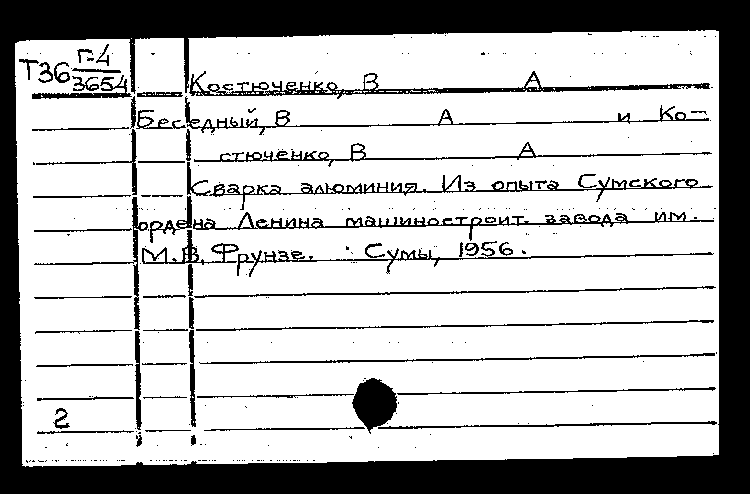 Т36 Г-4
3654
Костюченко, В А
Беседный, В А и Ко-
стюченко, В А
Сварка алюминия. Из опыта Сумского
ордена Ленина машиностроит. завода им.
М.В. Фрунзе. Сумы, 1956.
2